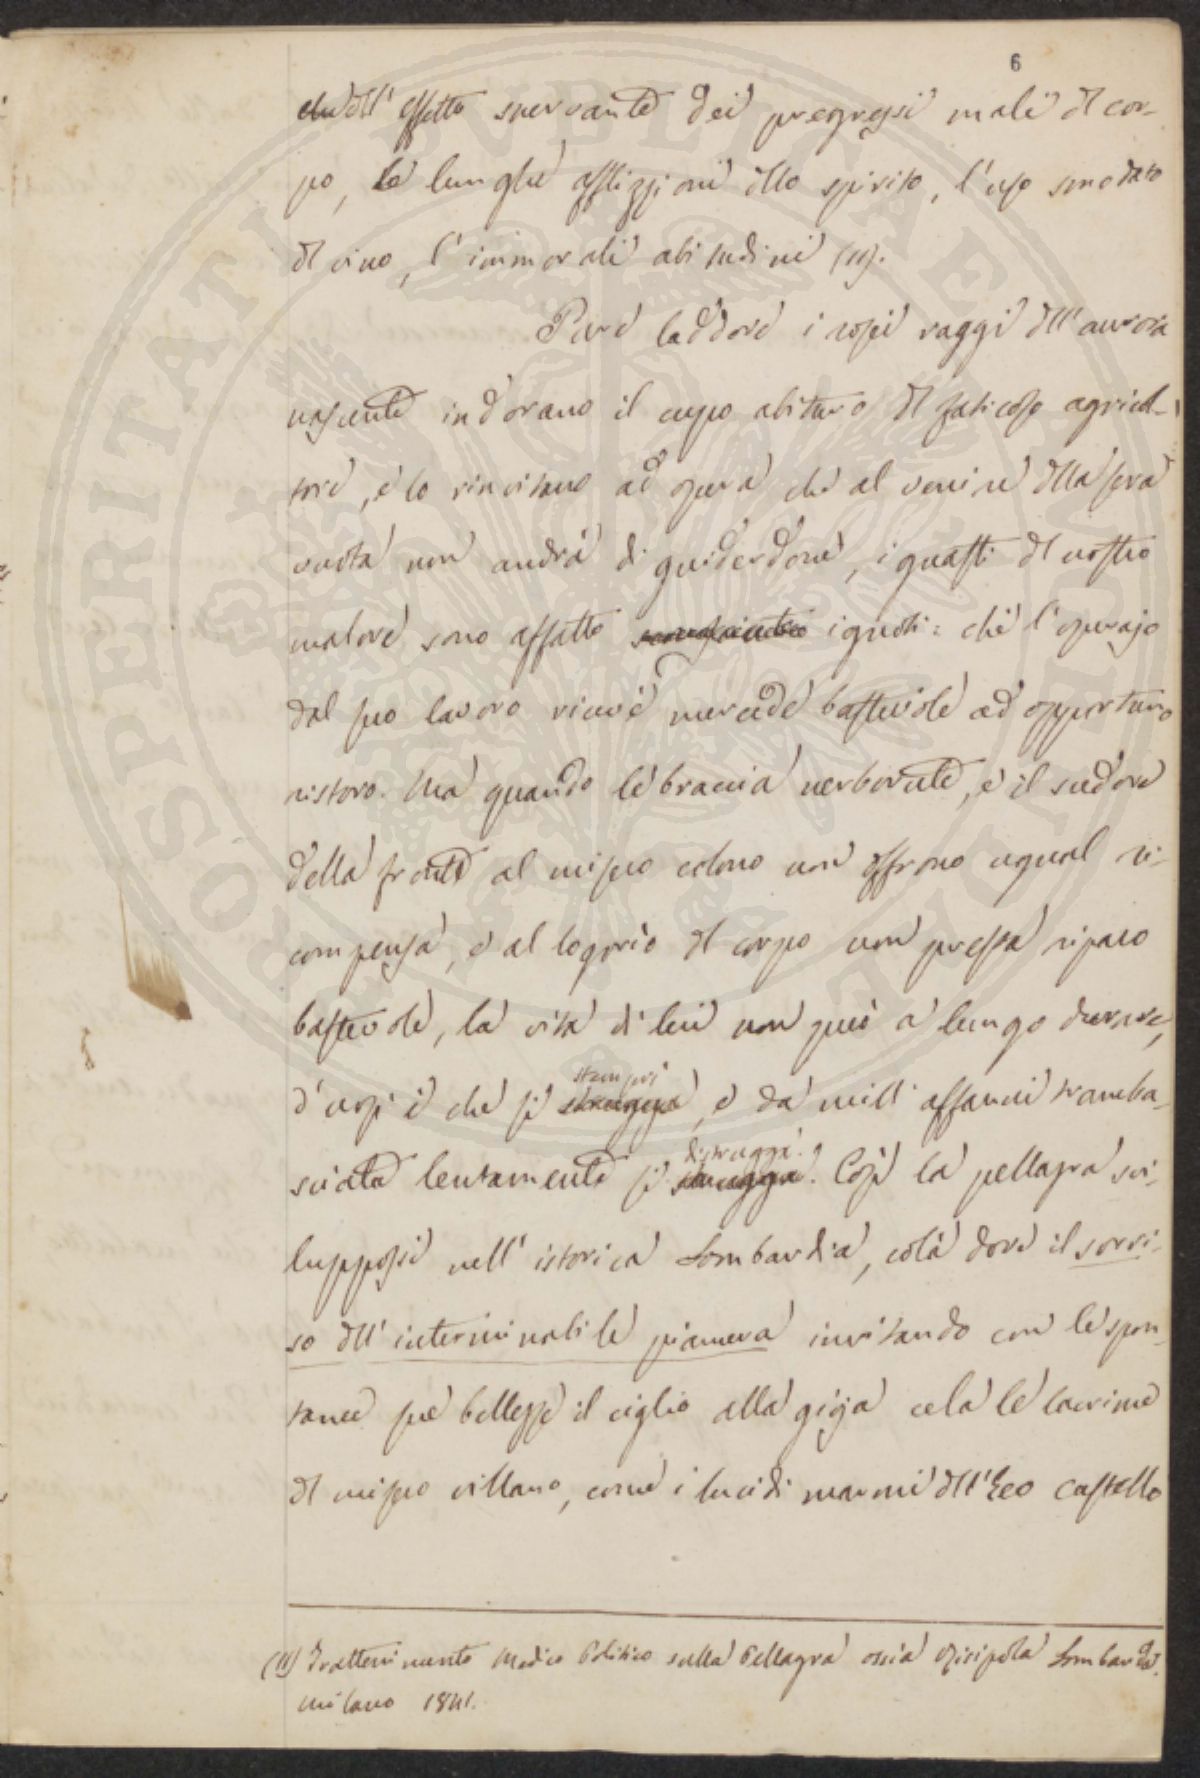 6
dell' effetto snervante dei pregressi mali del cor-
po, le lunghe afflizzioni dello spirito, l'uso smodato
del vino, l'immorali abitudini (11).
Pure laddove i rosei raggi dell'aurora
nascente indorano il cupo abituro del faticoso agricol-
tore, e lo rinvitano ad opera che al venire della sera
vuota non andrà di guiderdone, i guasti del nostro
malore sono affatto ignoti: chè l'operajo
dal suo lavoro riceve mercede bastevole ad opportuno
ristoro. Ma quando le braccia nerborute, e il sudore
della fronte al misero colono non offrono ugual ri-
compensa, e al logorio del corpo non pressta riparo
bastevole, la vita di lui non può a lungo durare,
d'uopo è che si stempri, e da mill' affanni tramba-
sciata lentamente si distrugga. Così la pellagra svi-
lupposse nell' istorica Lombardia, colà dove il sorri-
so dell' interminabile pianura invitando con le spon-
tanee sue bellezze il ciglio alla gioja cela le lacrime
del misero villano, come i lucidi marmi dell' Leo castello
(11) Trattenimento Medico Politico sulla Pellagra ossia Risipola Lombarda.
Milano 1841.
PROSPERITATI PVBLICAE AVGENDAE